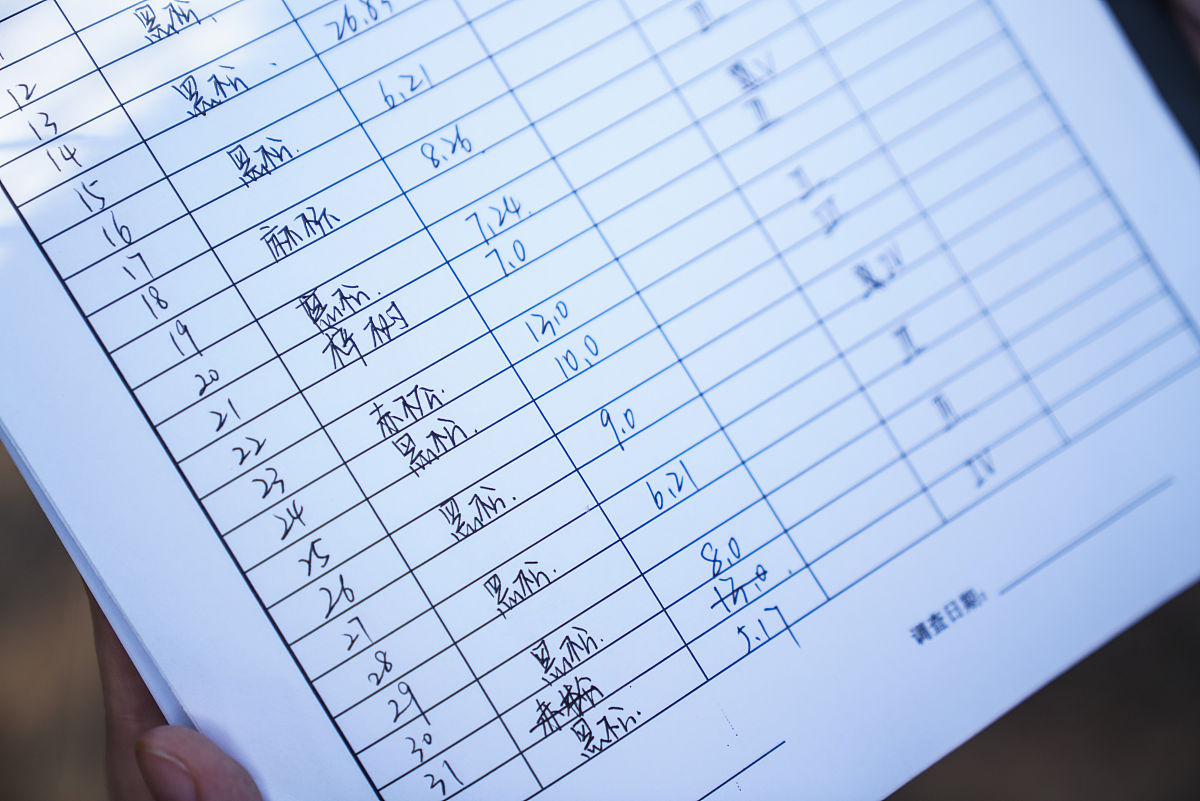 黑松.
12
13 黑松. 26.85
14
15 黑松. 6.21
16
17 麻栎 8.26. II
18
19 黑松. 7.24. IV
20 树 7.0 II
21
22 赤松. 13.0 II
23 黑松. 10.0
24
25 黑松. 9.0 IV
26
27 黑松. 6.21 II
28
29 黑松. 8.0 II
30 赤松 13.0
31 黑松. 5.17 IV
调查日期: